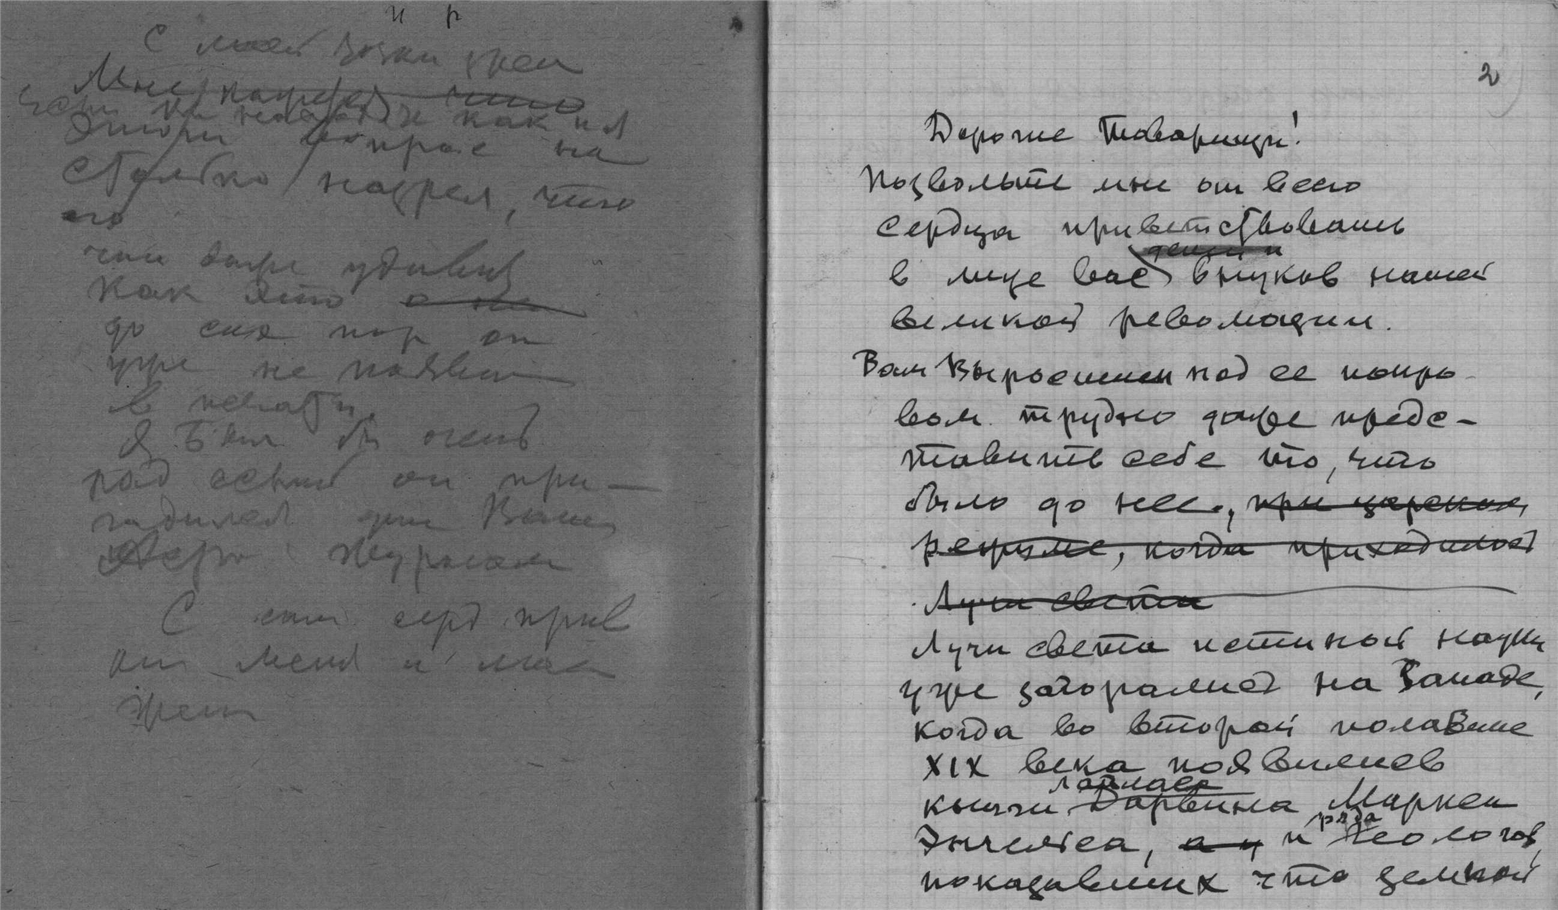 и р
С моей точки зрен
Мне кажется что
как ни
этот вопрос на
столько назрел, что
его
что даже удивит
как это
до сих пор он
уже не появил
в печати.
Я был бы очень
рад если он при—
годился для Ваш
журнала
С сим серд прив
от меня и моей
жены
2
Дорогие товарищи!
Позвольте мне от всего
сердца приветствовать
детей и
в лице вас внуков нашей
великой революции.
Вам выросшим под ее покро
вом трудно даже предс-
тавить себе то, что
было до нее, при царском
режиме, когда приходилось
Лучи света
Лучи света истиной науки
уже загорались на Западе,
когда во второй половине
XIX века появились
Лапласа
книги Дарвина Маркса
ряда
Энгельса, а и и геологов,
показавших что земной